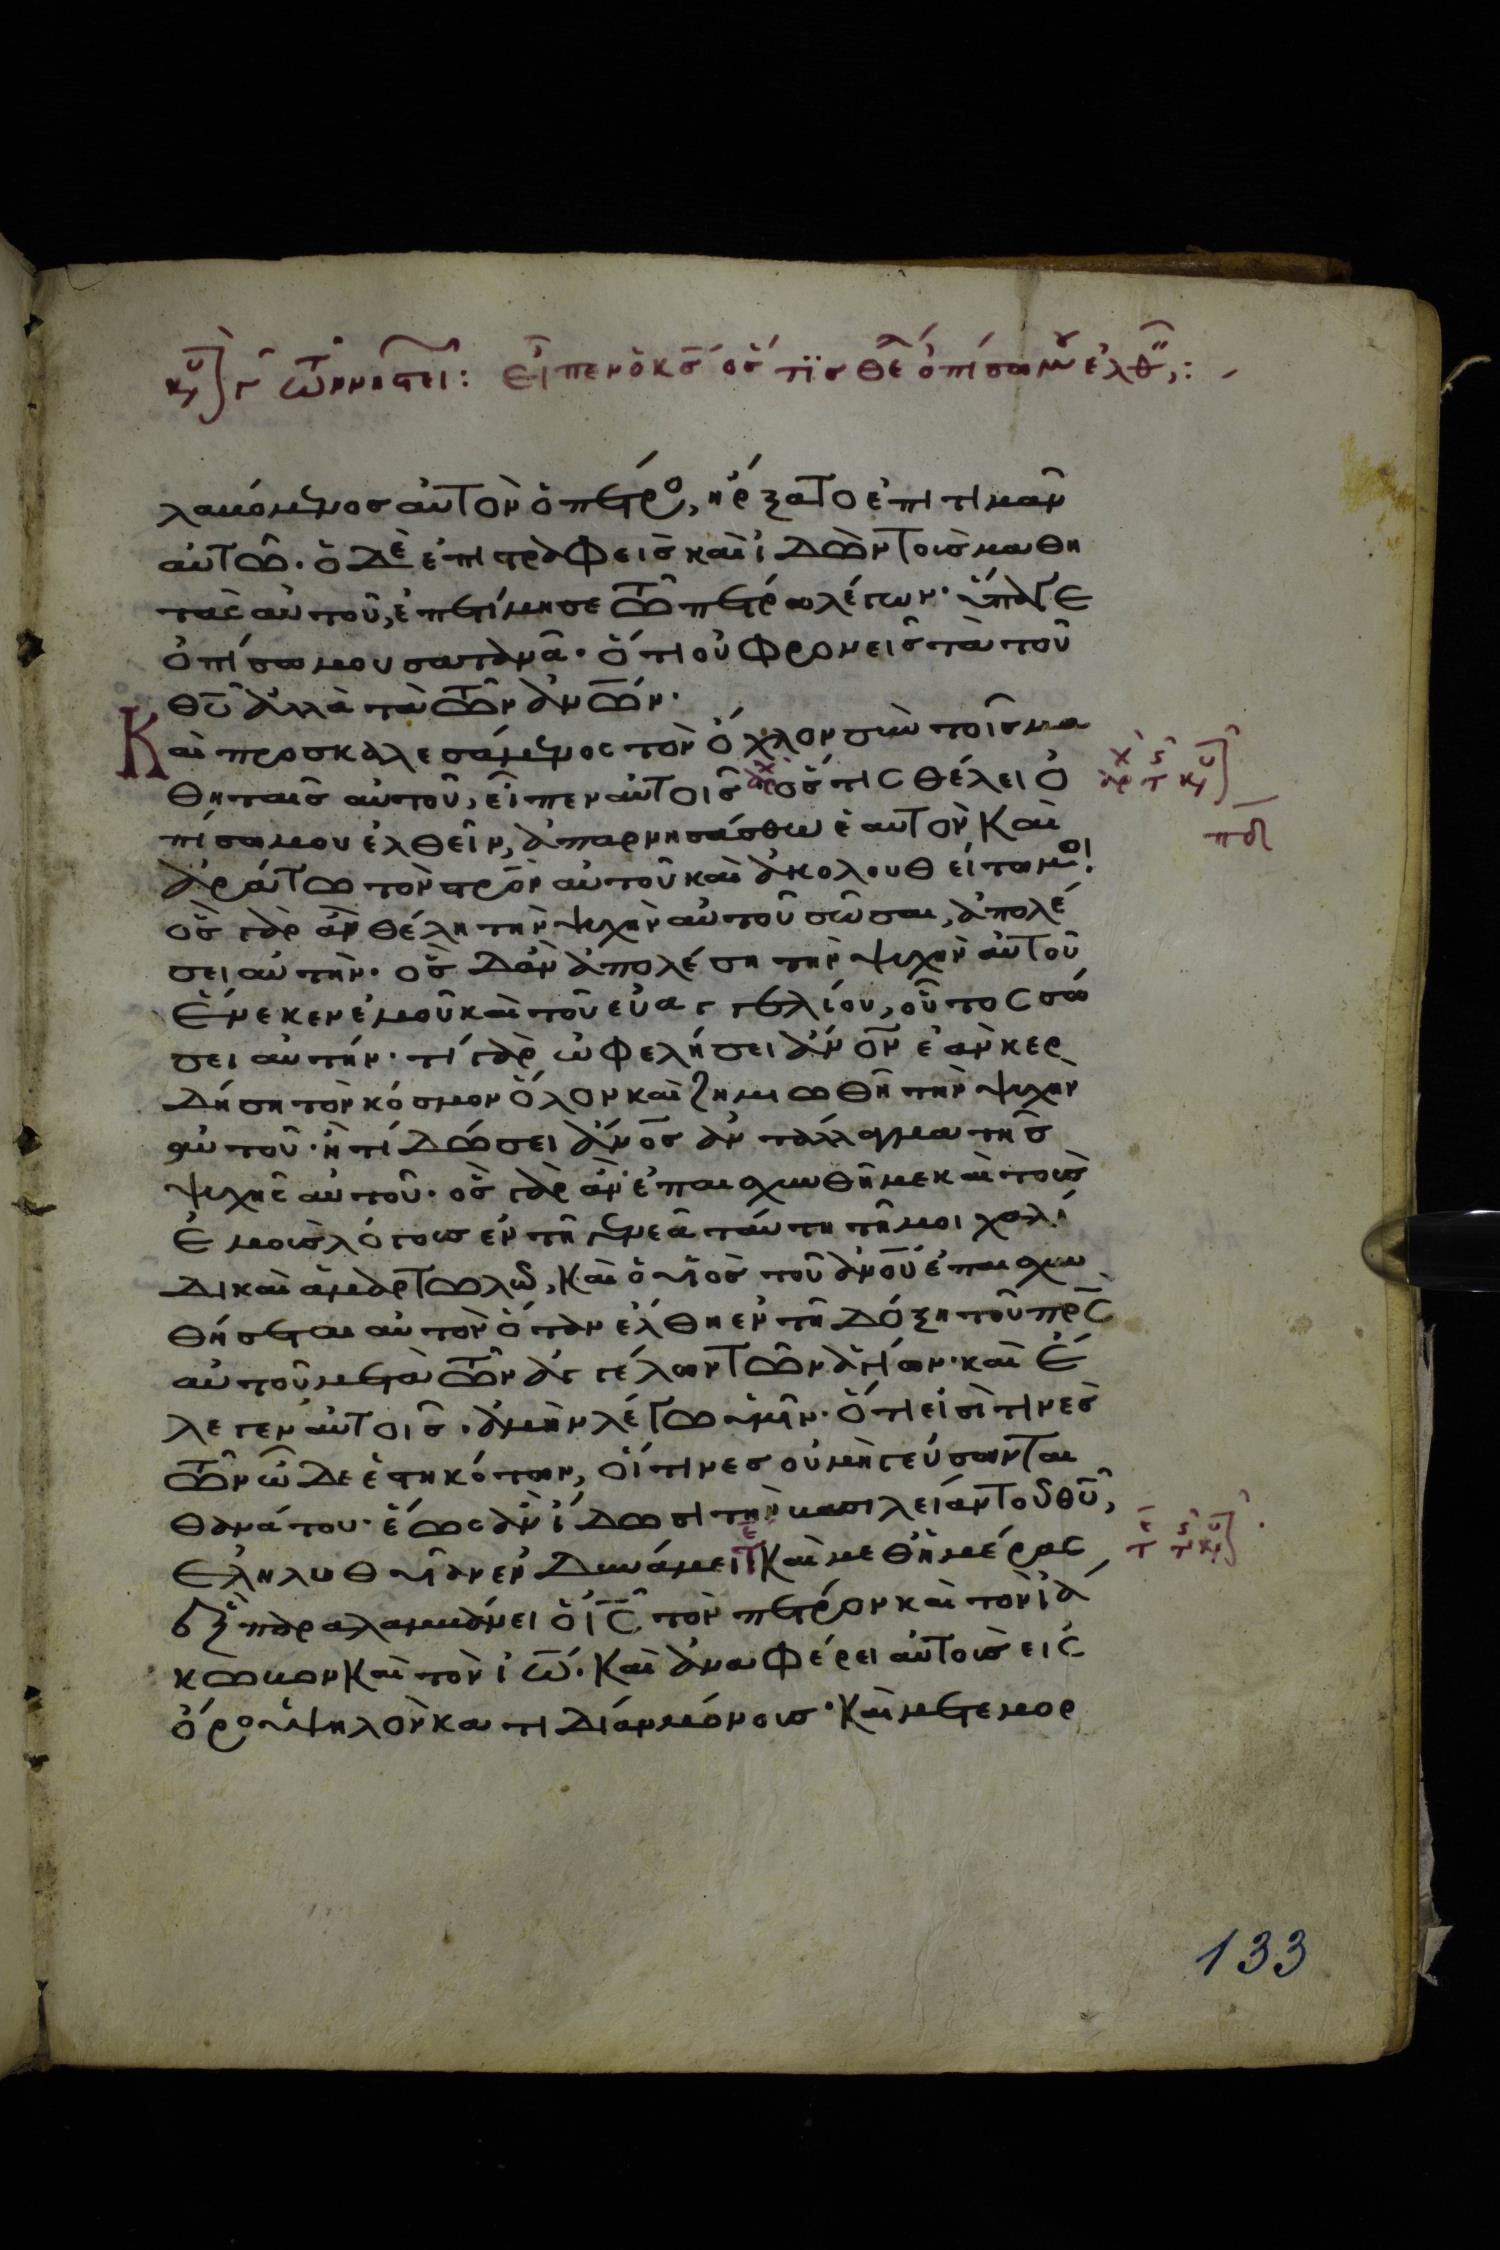 κυ γ τῶν νηστει: εἶπεν ὁ κσ ὅς τϊσ θέ ὀπίσω μου ἐλθ,:
λαβόμενοσ αὐτὸν ὁ πέτρο, ἤρξατο ἐπιτιμᾶν
αὐτῶ· ὁ δὲ ἐπιστραφεὶσ καὶ ἰδὼν τοὺσ μαθη
τὰς αὐτοῦ, ἐπετίμησε τῶ πέτρω λέγων· ὕπαγε
ὀπίσω μου σατανᾶ· ὅτι οὐ φρονεῖσ τὰ τοῦ
θῦ ἀλλὰ τὰ τῶν ἀνῶν·
Καὶ προσκαλεσάμενος τὸν ὄχλον σὺν τοῖσ μα
θηταῖσ αὐτοῦ, εἶπεν αὐτοῖσ ὅστις θέλει ὀ
πίσω μου ἐλθεῖν, ἀπαρνησάσθω ἑαυτὸν καὶ
ἀράτω τὸν στρὸν αὐτοῦ καὶ ἀκολουθείτω μοι
ὃσ γὰρ ἂν θέλη τὴν ψυχὴν αὐτοῦ σῶσαι, ἀπολέ
σει αὐτήν· ὃσ δἂν ἀπολέση τὴν ψυχὴν αὐτοῦ
ἕνεκεν ἐμοῦ καὶ τοῦ εὐαγγελίου, οὗτος σώ
σει αὐτήν· τί γὰρ ὠφελήσει ἄνον ἐὰν κερ
δήση τὸν κόσμον ὅλον καὶ ζημιωθῆ τὴν ψυχὴν
αὐτοῦ· ἢ τί δώσει ἄνοσ ἀντάλλαγμα τῆσ
ψυχῆς αὐτοῦ· ὃσ γὰρ ἂν ἐπαισχυνθῆ με καὶ τοὺσ
ἐμοὺσ λόγουσ ἐν τῆ γενεᾶ ταύτη τῆ μοιχαλί
δι καὶ ἁμαρτωλῶ, καὶ ὁ υἱὸσ τοῦ ἀνοῦ ἐπαισχυν
θήσεται αὐτὸν ὅταν ἔλθη ἐν τῆ δόξη τοῦ πρς
αὐτοῦ μετὰ τῶν ἀγγέλων τῶν ἁγίων· καὶ ἔ
λεγεν αὐτοῖσ· ἀμὴν λέγω ὑμῖν· ὅτι εἰσὶ τινὲσ
τῶν ὧδε ἑστηκότων, οἵτινεσ οὐ μὴ γεύσωνται
θανάτου· ἕως ἂν ἴδωσι τὴν βασιλείαν τοῦ θῦ,
ἐληλυθυῖαν ἐν δυνάμει Καὶ μεθἡμέρας
ἓξ παραλαμβάνει ὁ ἰς τὸν πέτρον καὶ τὸν ἰά
κωβον καὶ τὸν ἰω. καὶ ἀναφέρει αὐτοὺσ εἰς
ὄρο ὑψηλὸν κατιδίαν μόνουσ· καὶ μετεμορ
133